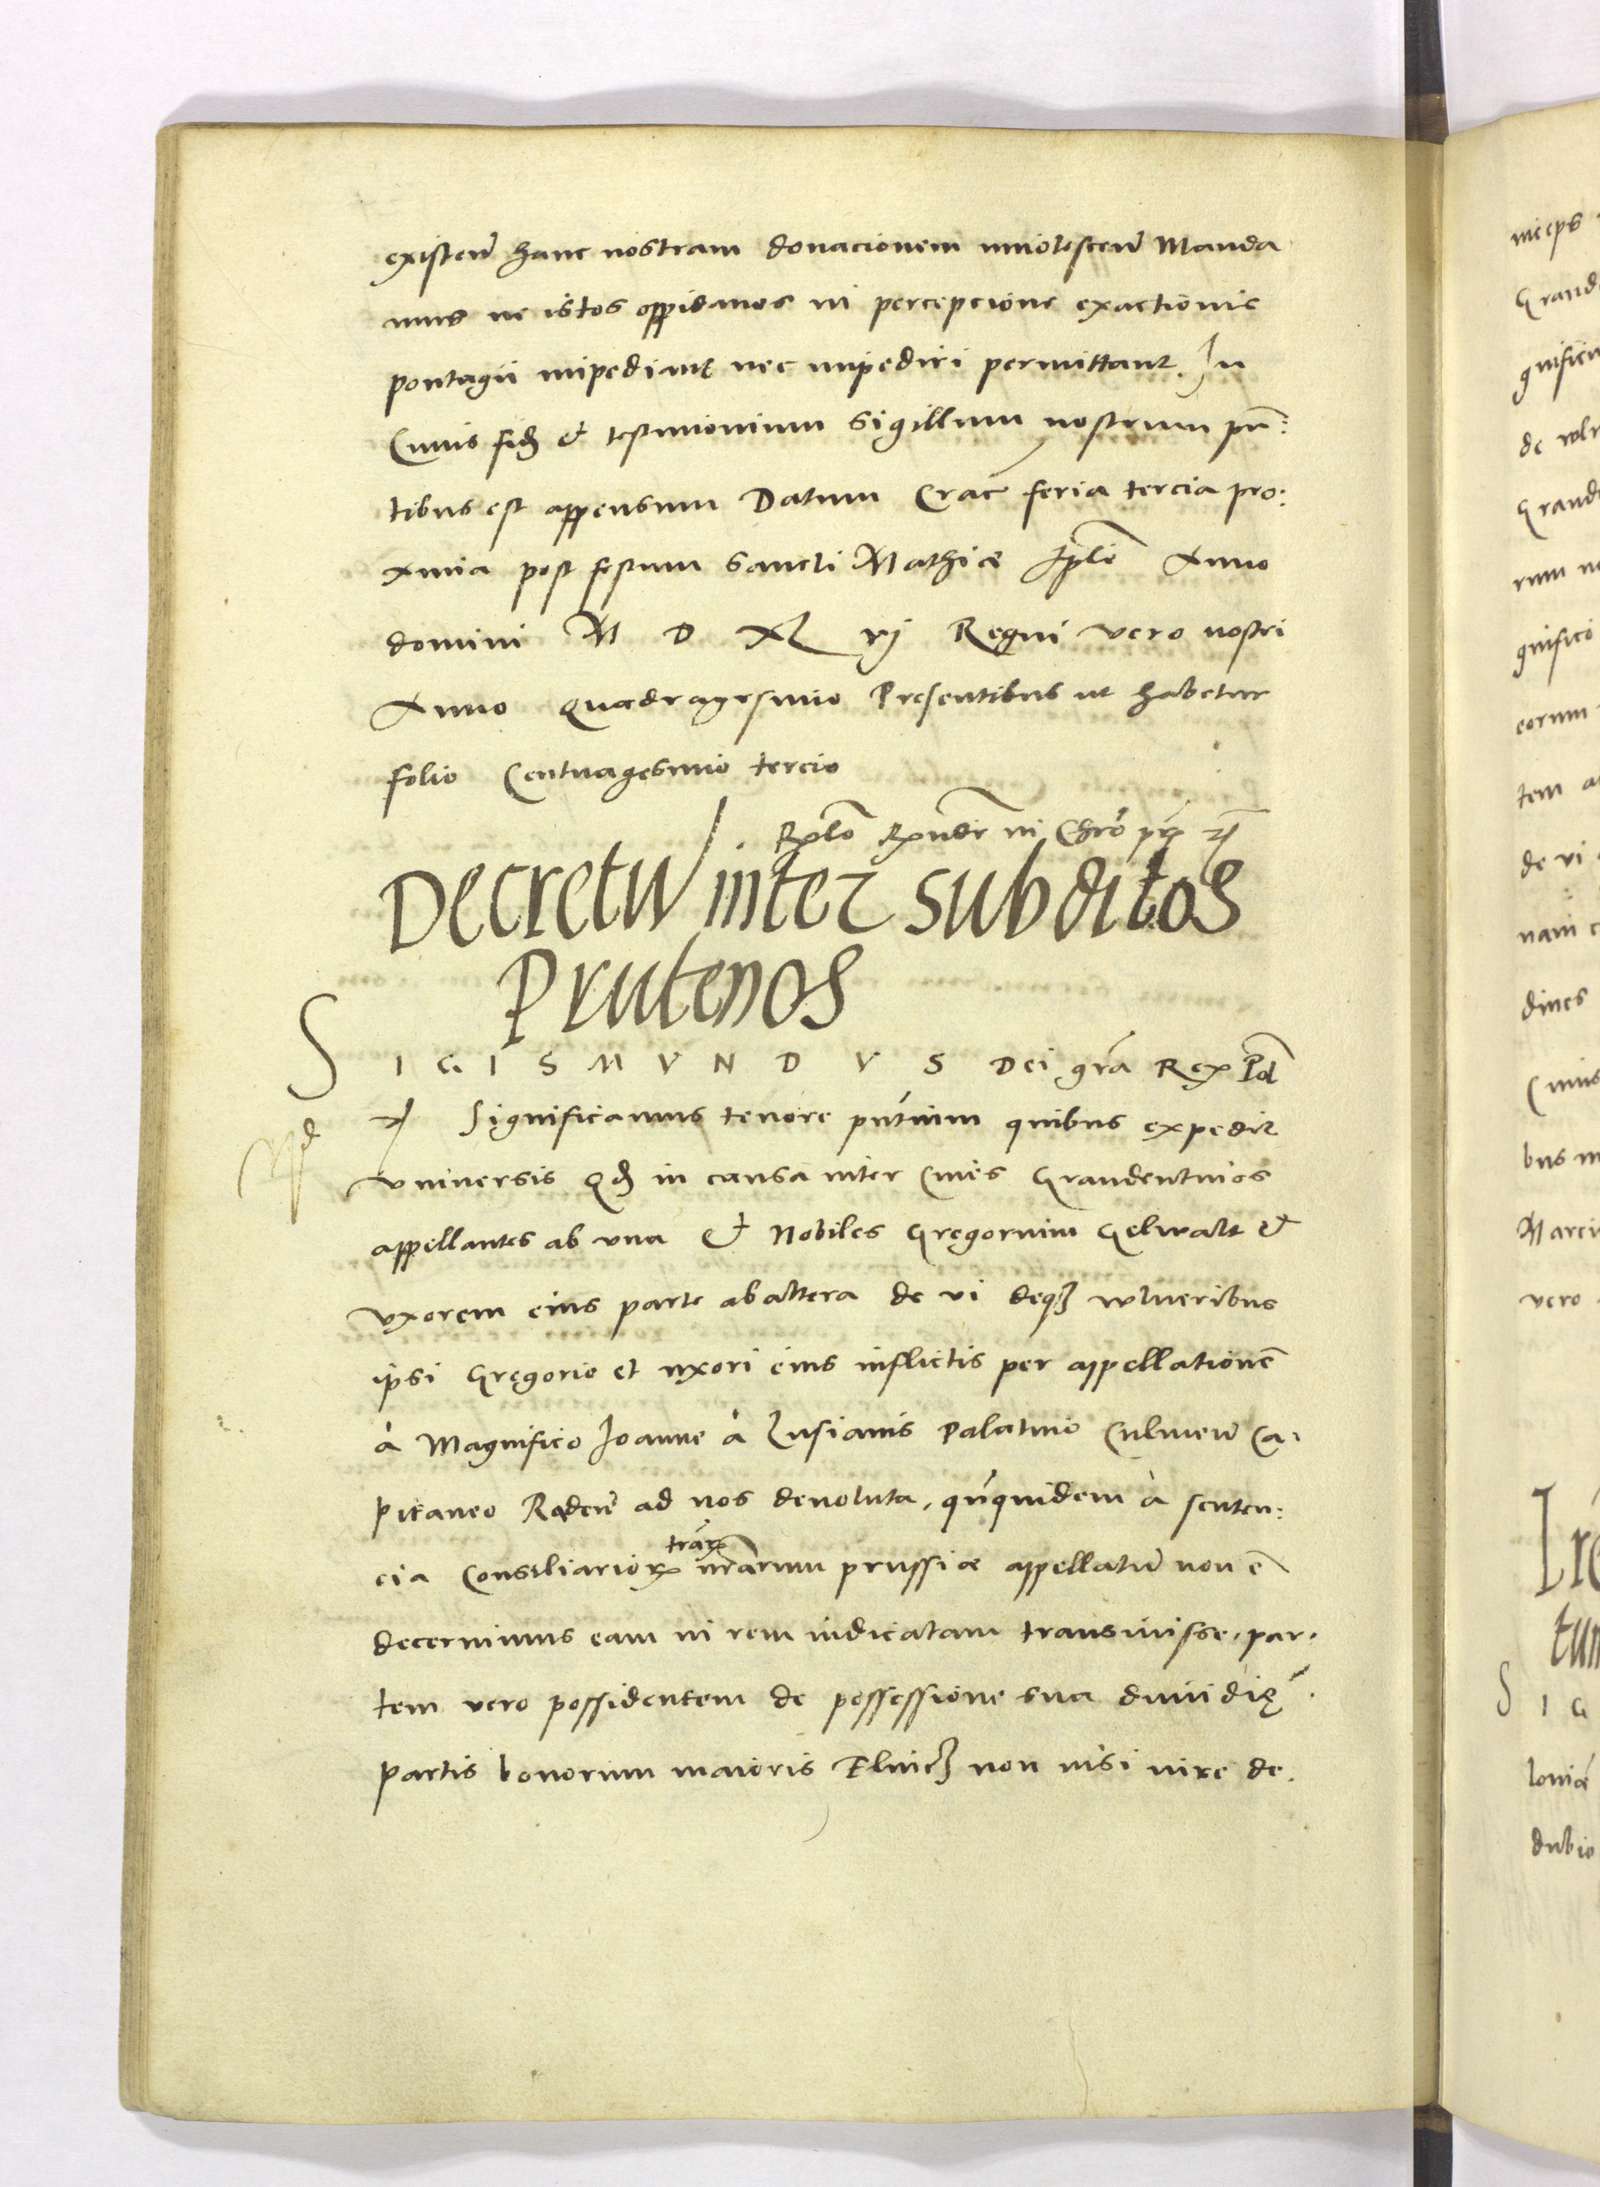 existen̄ hanc nostram donacionem iniolescen̄ Manda
mus ne istos oppidanos in percepcione exactionis
pontagii impediant nec impediri permittant. In
Cuius fidem & testimonium sigillum nostrum pn̄:
tibus est appensum Datum Crac̄ feria tercia pro:
xima post festum Sancti Mathiae Apl̄i Anno
domini M D XL vj Regni vero nostri
Anno quadragesimo Presentibus ut habetur
folio Centuagesimo tercio
Decretu inter subditos
Prutenos
SIGISMVNDVS Dei gr̄a Rex Pol
Significamus tenore pn̄tium quibus expedit
vniversis Qd in causa inter Cives Graudentinos
appellantes ab una & Nobiles Gregorium Gelwalt &
vxorem eius parte ab altera de vi deq; wlneribus
ipsi Gregorio et uxori eius inflictis per appellationē
à Magnifico Joanne à Lusianis Palatino Culmen̄ Ca.
pitaneo Raden̄ ad nos devoluta, qn̄quidem à senten:
cia Consiliarior terrar nr̄arum prussiae appellatum non ē
decernimus eam in rem iudicatam transivisse, par.
tem vero possidentem de possessione sua dimidię
partis bonorum maioris Elnicz non nisi iure de.